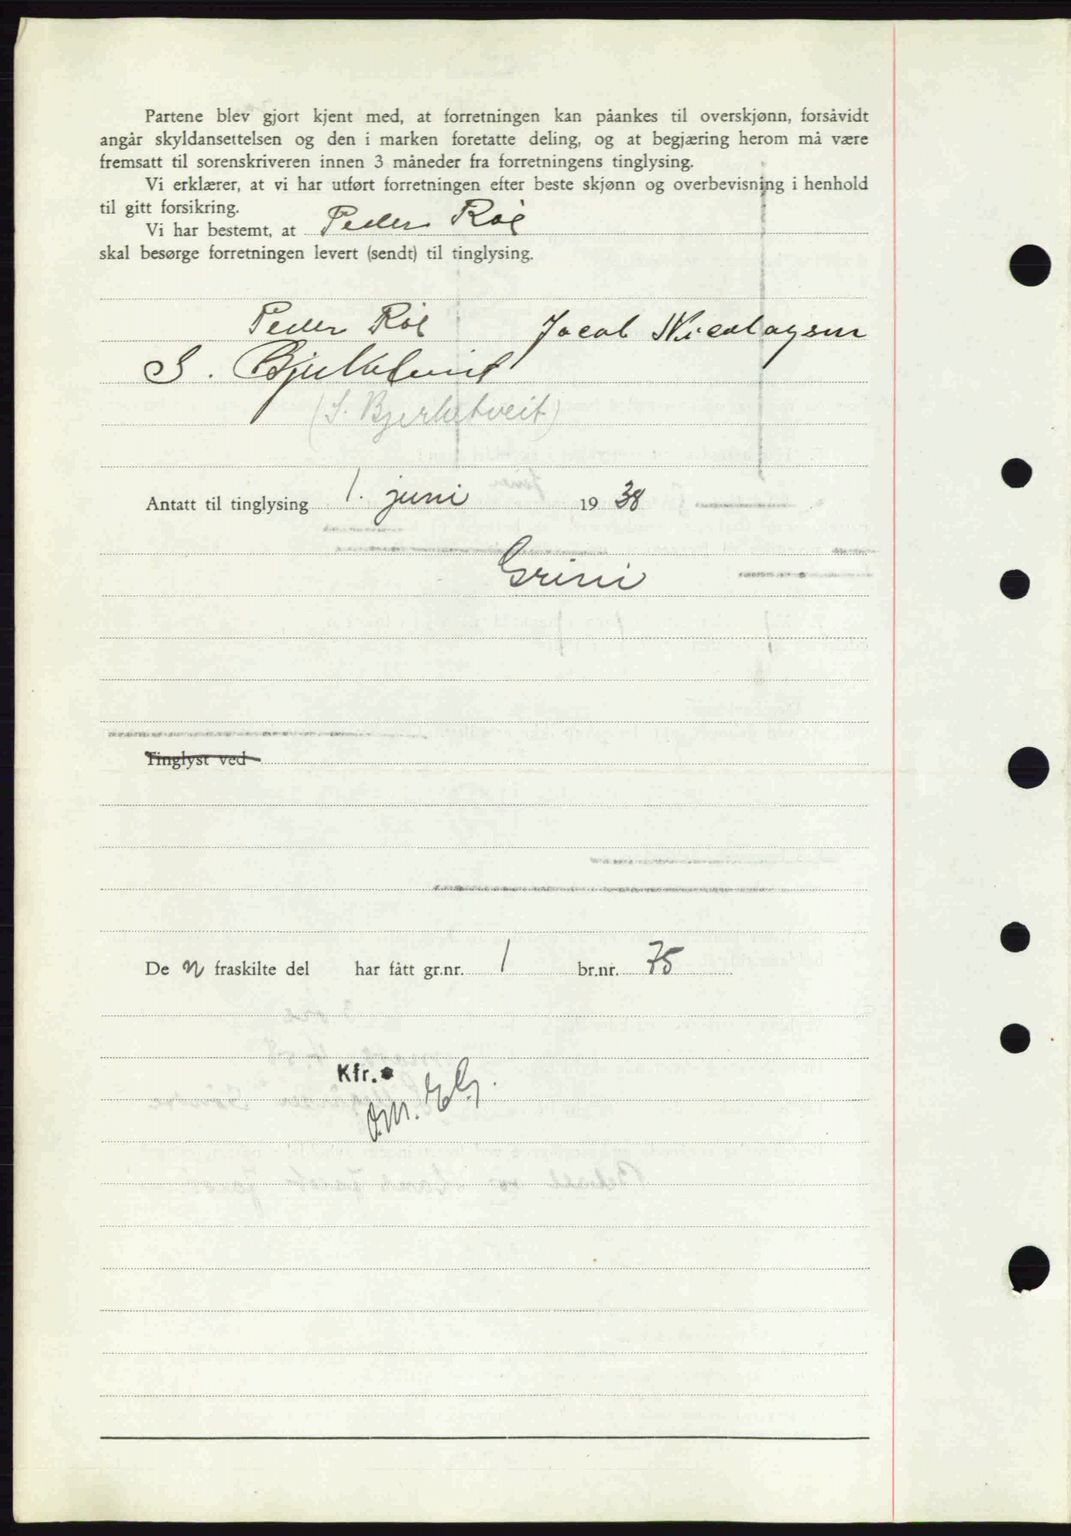 Partene blev gjort kjent med, at forretningen kan påankes til overskjønn, forsåvidt
angår skyldansettelsen og den i marken foretatte deling, og at begjæring herom må være
fremsatt til sorenskriveren innen 3 måneder fra forretningens tinglysing.
Vi erklærer, at vi har utført forretningen efter beste skjønn og overbevisning i henhold
til gitt forsikring.
Vi har bestemt, at Peder Röe
skal besørge forretningen levert (sendt) til tinglysing.
Peder Röe Jacob Nicolaysen
S. Bjerketveit
(S. Bjerketveit)
Antatt til tinglysing 1. juni 1938
Grini
Tinglyst ved
De n fraskilte del har fått gr.nr. 1 br.nr. 75
Kfr.